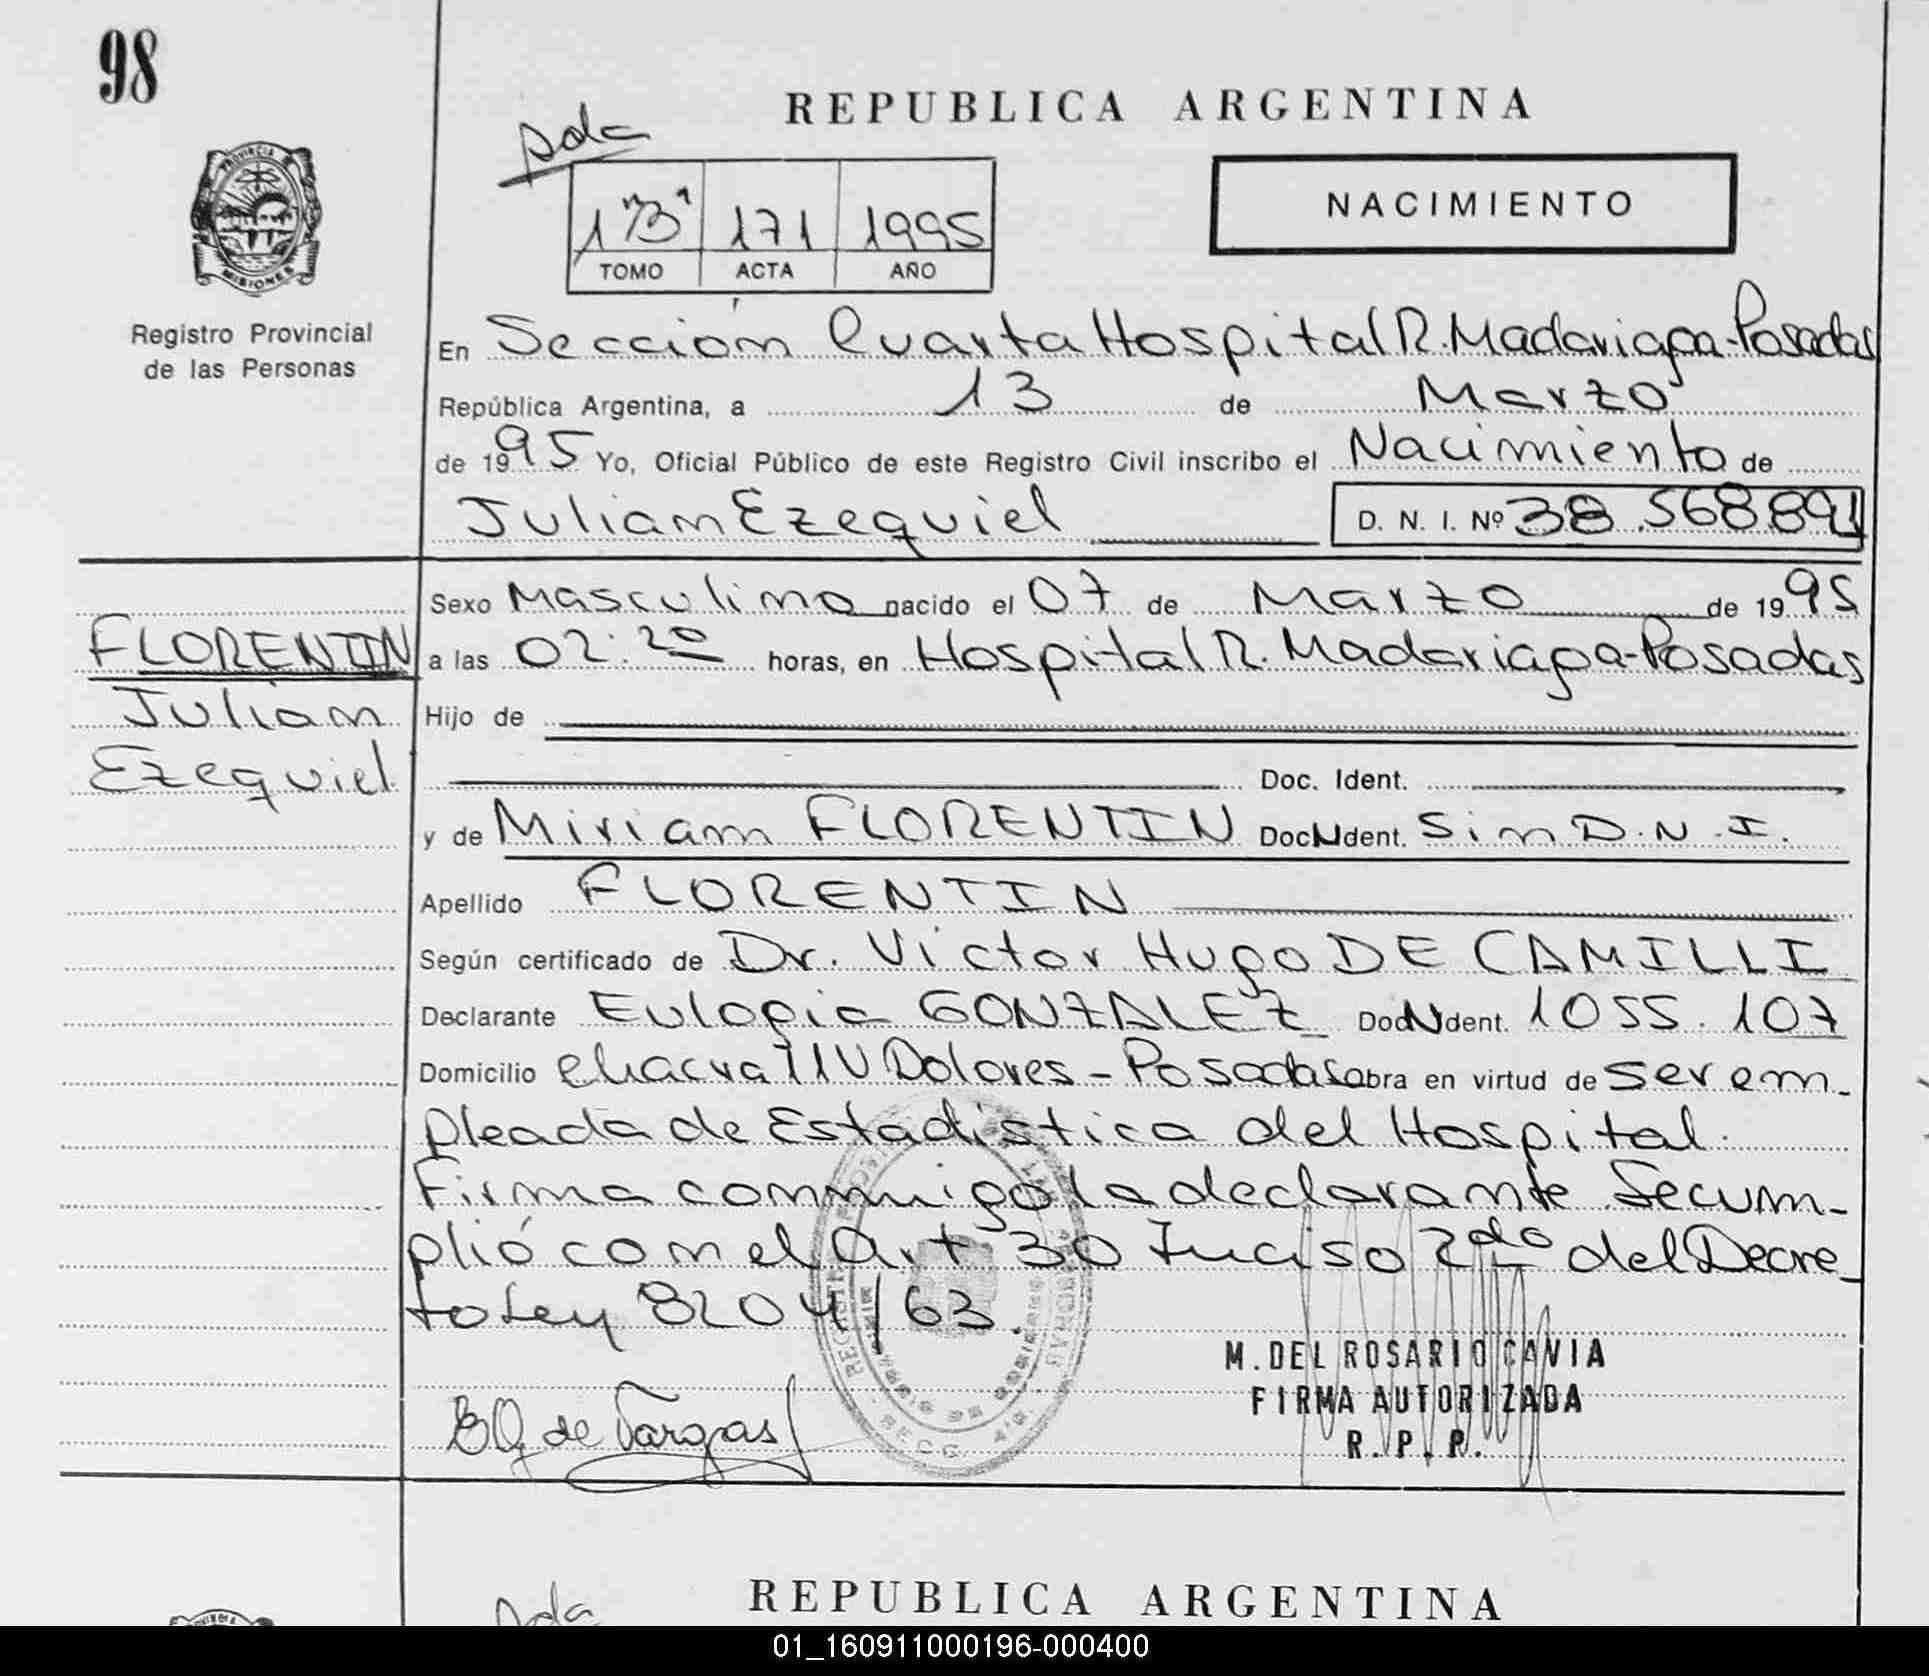 98
REPUBLICA ARGENTINA
pda
1 "B" 171 1995
TOMO ACTA AÑO
NACIMIENTO
PROVINCIA
MISIONES
Registro Provincial
de las Personas
En Sección Cuarta Hospital R. Madariaga-Posadas
República Argentina, a 13 de Marzo
de 1995 Yo, Oficial Público de este Registro Civil inscribo el Nacimiento de
Julian Ezequiel D. N. I. Nº 38.568.891
Sexo Masculino nacido el 07 de Marzo de 1995
FLORENTIN
a las 02:20 horas, en Hospital R. Madariaga-Posadas
Julian
Hijo de
Ezequiel
Doc. Ident.
y de Miriam FLORENTIN Doc. Ident. Sin D.N.I.
Apellido FLORENTIN
Según certificado de Dr. Victor Hugo DE CAMILLI
Declarante Eulogia GONZALEZ Doc. Ident. 1055.107
Domicilio chacra Dolores - Posadas Obra en virtud de ser em-
pleada de Estadística del Hospital.
Firma conmigo la declarante. Se cum-
plió con el Art 30 Inciso 2do del Decre-
to Ley 8204/63.
M. DEL ROSARIO CAVIA
FIRMA AUTORIZADA
R. P. P.
de Vargas
REPUBLICA ARGENTINA
pda
01_160911000196-000400